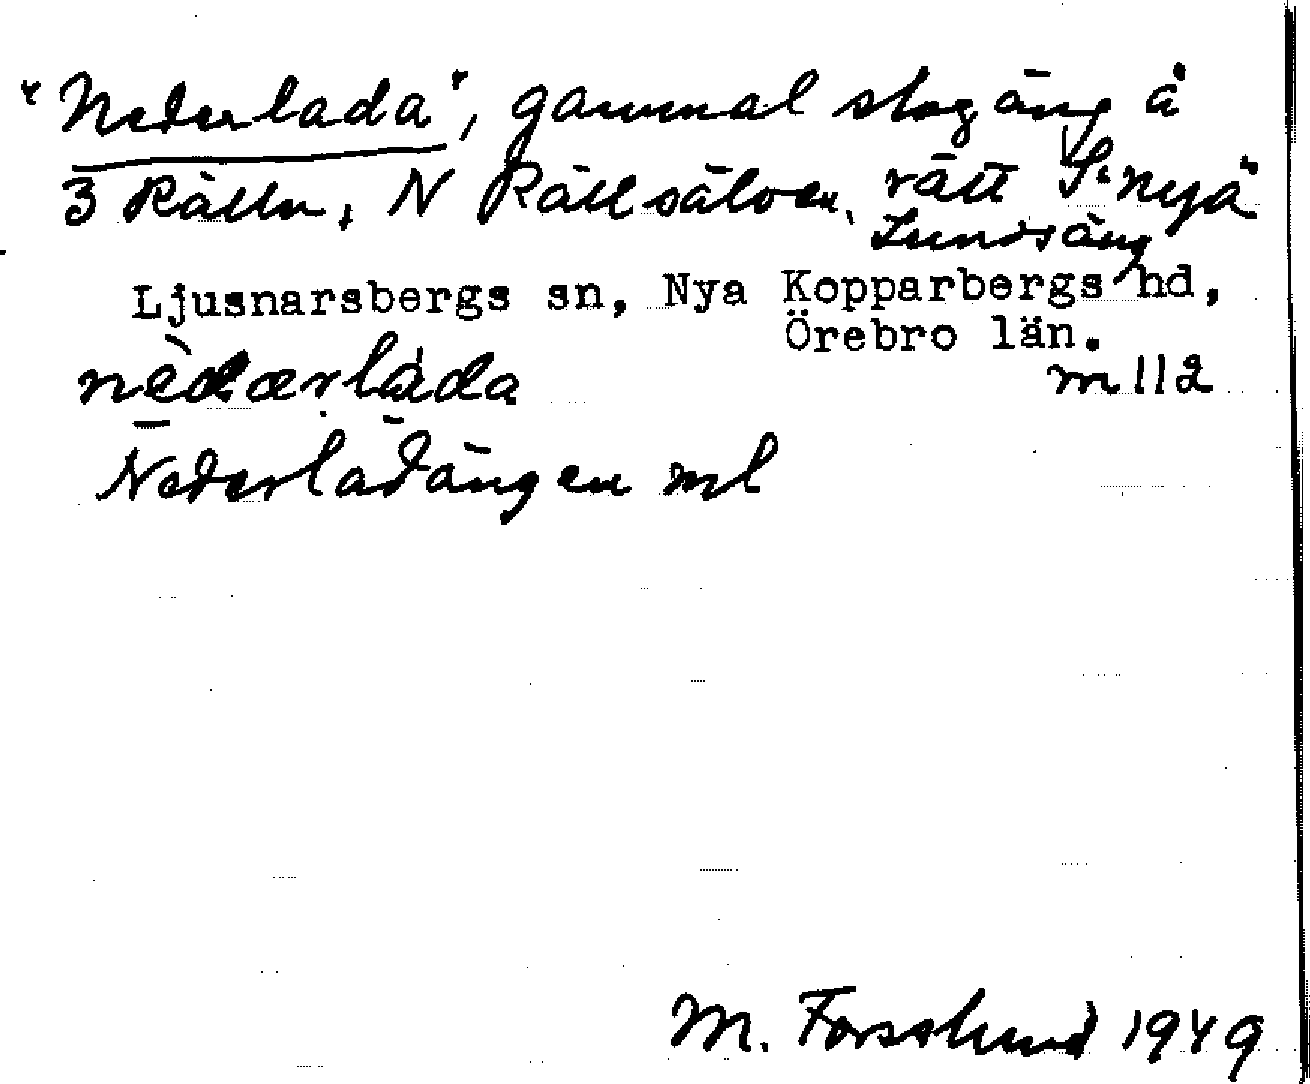 "Nederlada", gammal slogäng å
3 Rälln, N Rällsälven, rätt S "nya"
Lundsäng
Ljusnarsbergs sn, Nya Kopparbergs hd,
Örebro län.
nèdærlåda
m 112
Nederladängen ml
M. Forsslund 1949